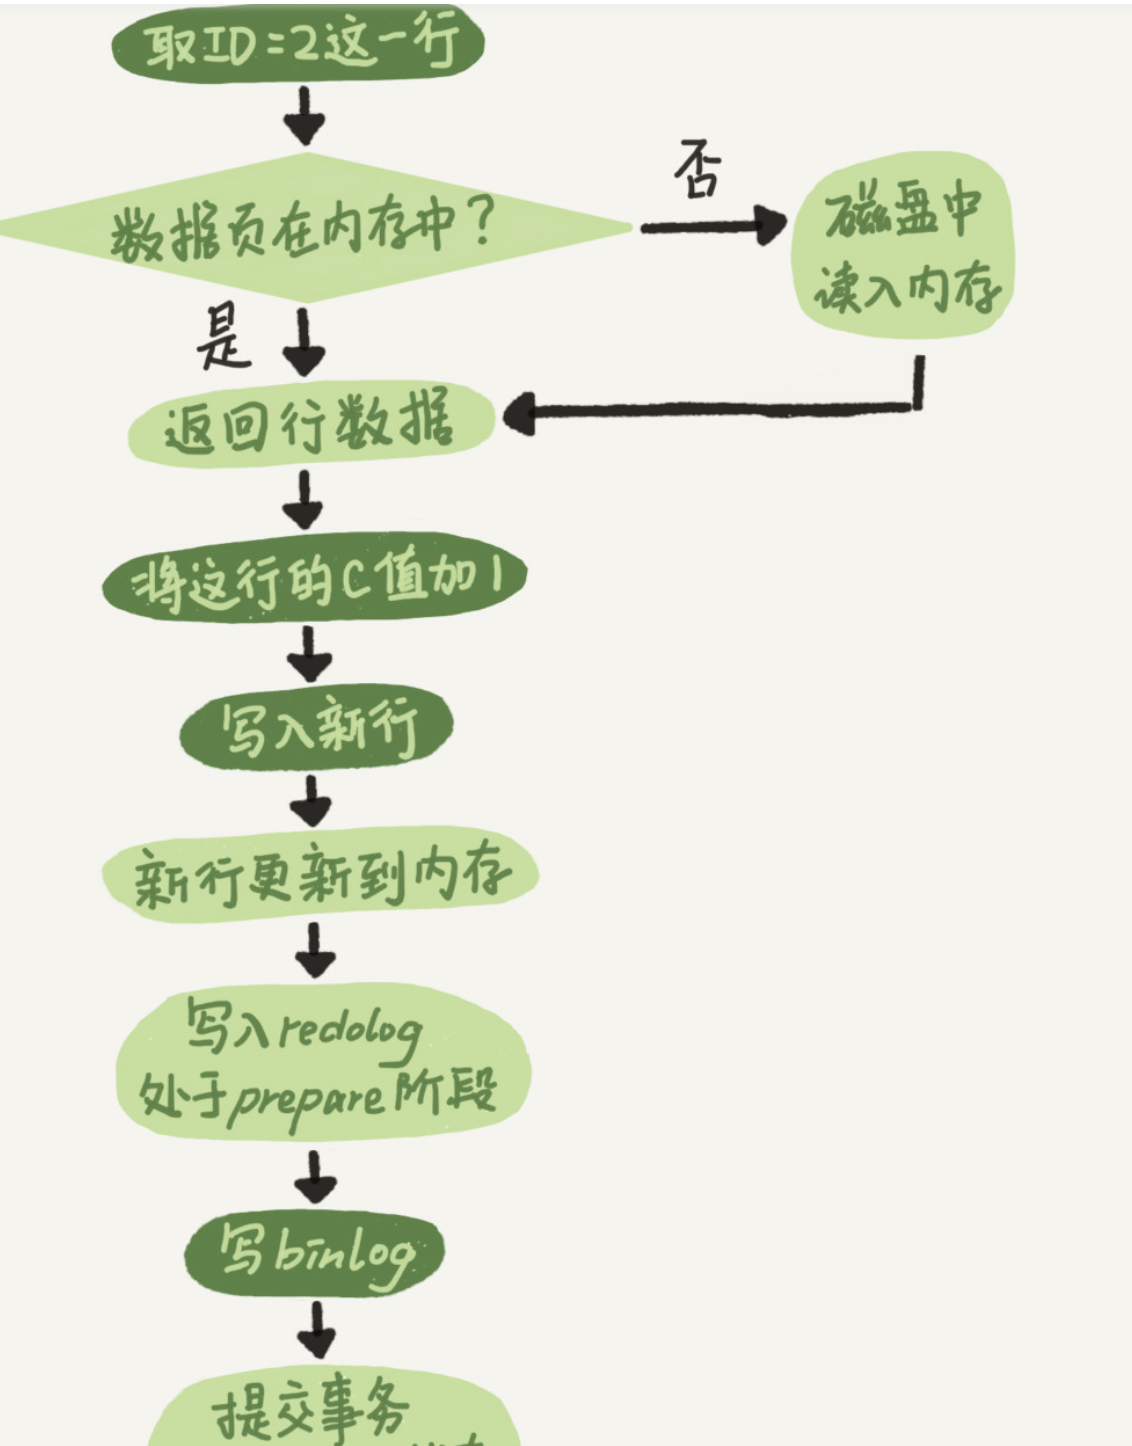 取ID=2这一行
数据页在内存中?
否
磁盘中
读入内存
是
返回行数据
将这行的C值加1
写入新行
新行更新到内存
写入redolog
处于prepare阶段
写binlog
提交事务